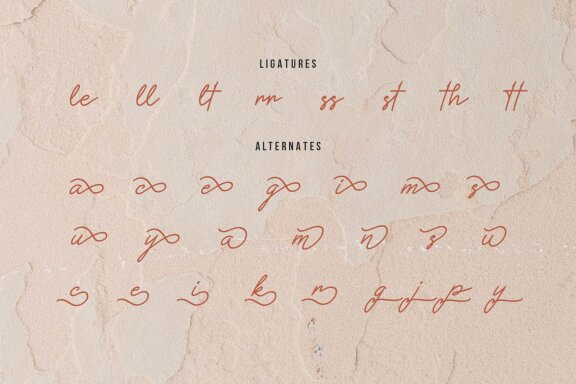 LIGATURES
le ll lt rr ss st th tt
ALTERNATES
a c e g i m s
u y a m n s u
c e i k n g j p y